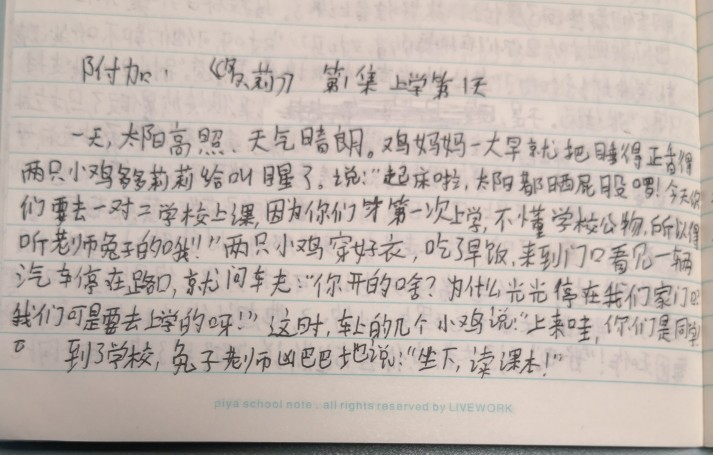 附加：《多莉》 第1集 上学第1天
一天，太阳高照、天气晴朗。鸡妈妈一大早就把睡得正香得
两只小鸡多多莉莉给叫醒了。说：“起床啦，太阳都晒屁股啰！今天你
们要去一对二学校上课，因为你们第一次上学，不懂学校公物，所以得
听老师兔子的哦！”两只小鸡穿好衣，吃了早饭，来到门口看见一辆
汽车停在路口，就问车夫：“你开的啥？为什么光光停在我们家门口
我们可是要去上学的呀！”这时，车上的几个小鸡说：“上来哇，你们是同学
到了学校，兔子老师凶巴巴地说：“坐下，读课本！”
piya school note all rights reserved by LIVEWORK